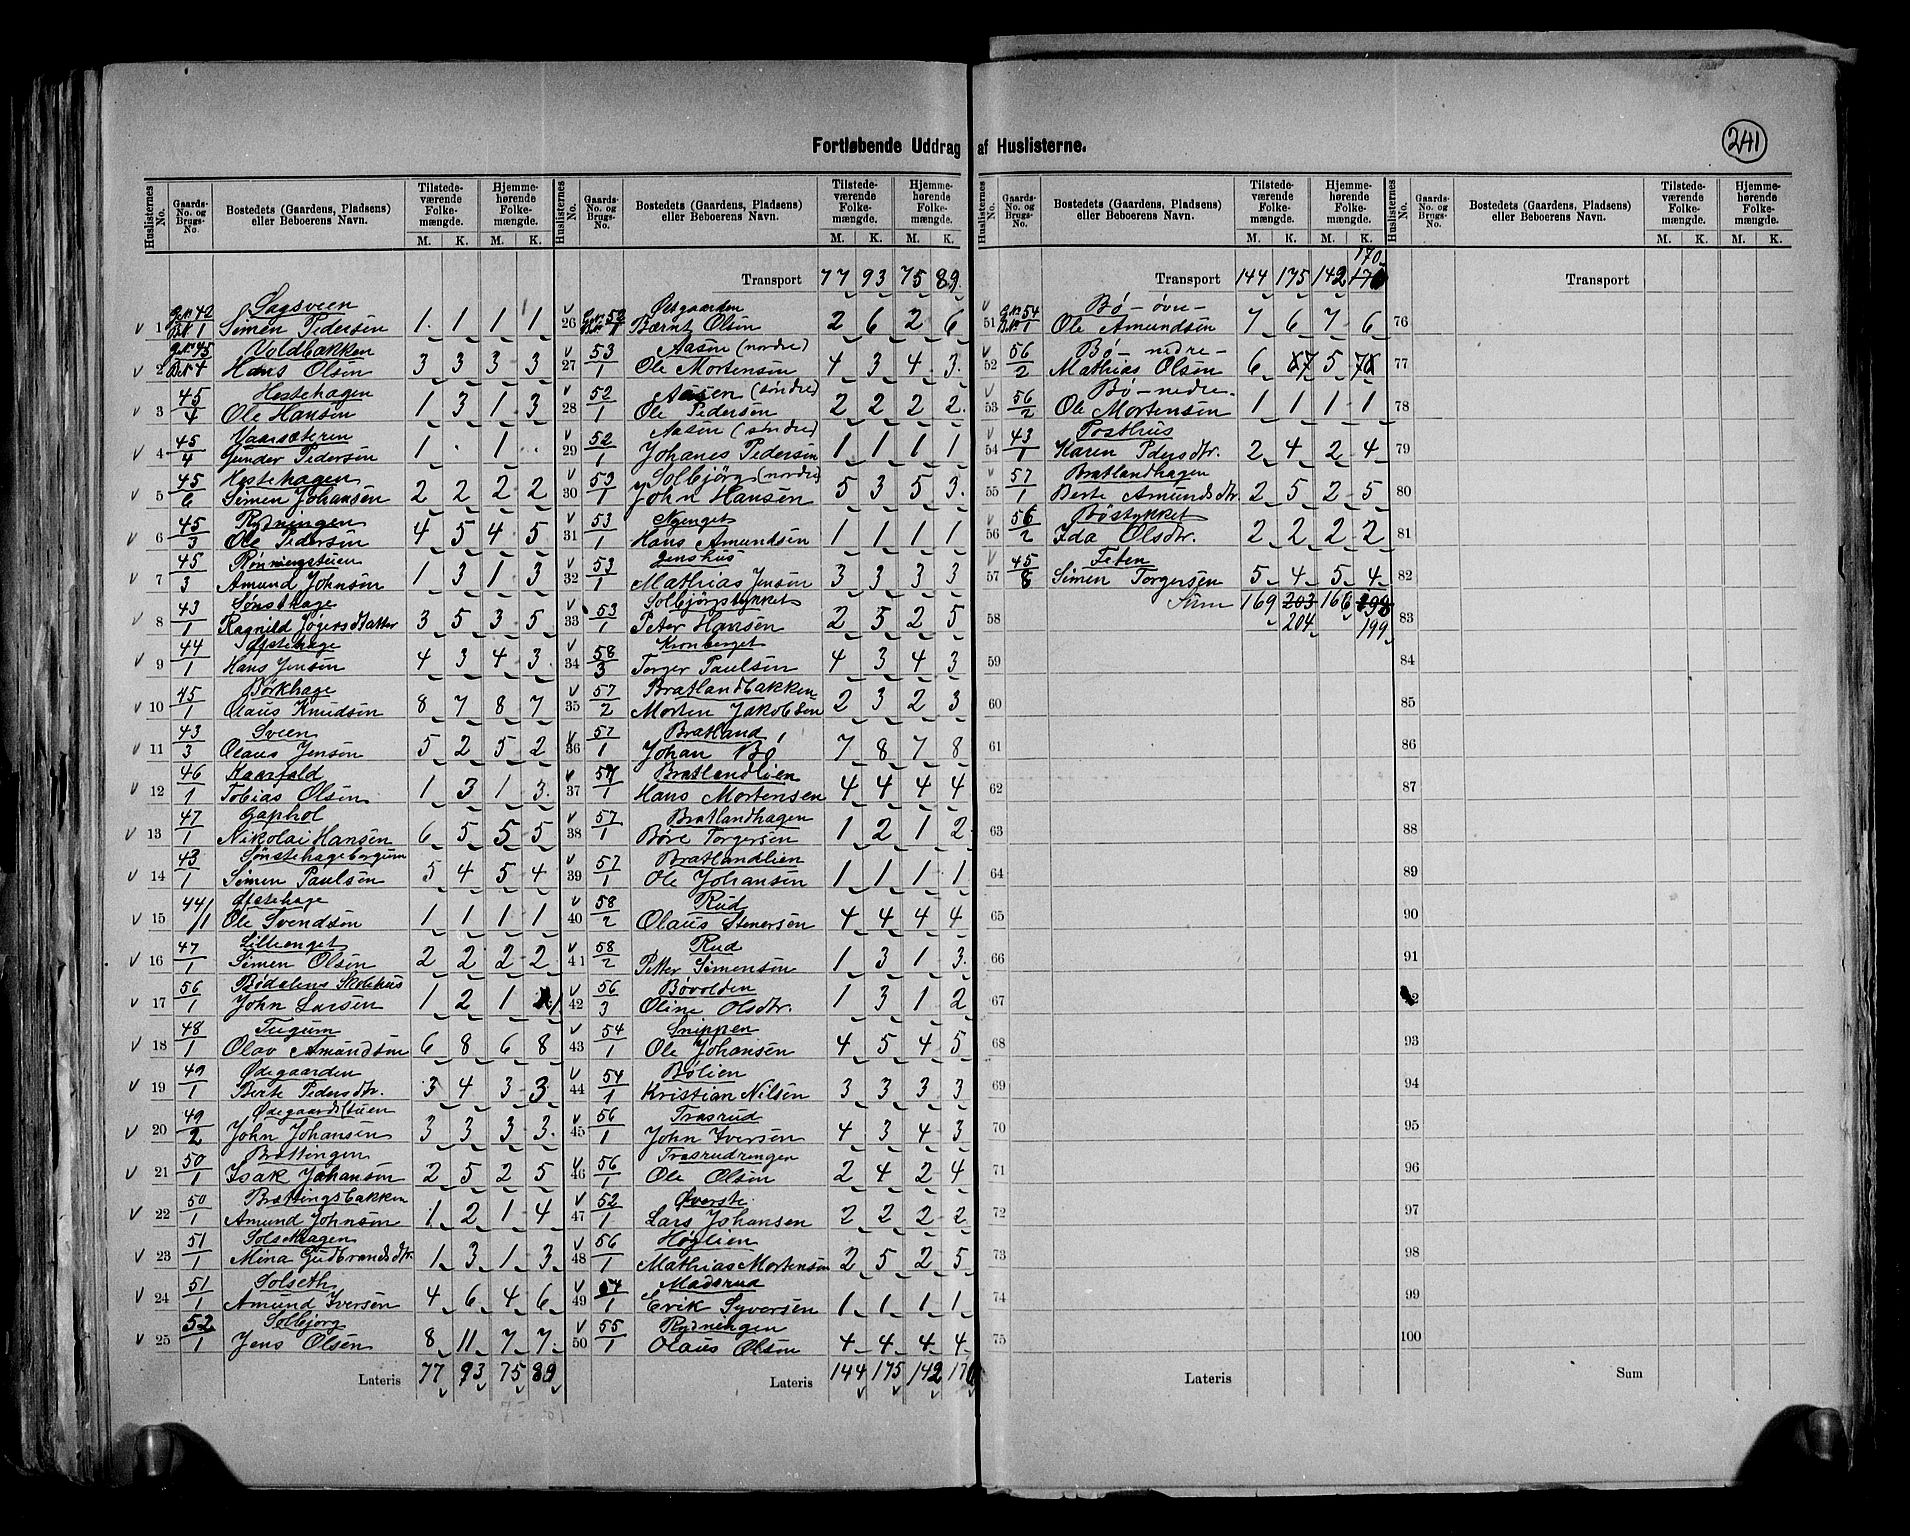 Fortløbende Uddrag af Huslisterne.
241
Huslisternes No. Gaards-No. og Brugs-No. Bostedets (Gaardens, Pladsens) eller Beboerens Navn. Tilstedeværende Folkemængde. M. K. Hjemmehørende Folkemængde. M. K.
1 G.Nr. 42 B.Nr. 1 Sagsveen
Simen Pedersen 1 1 1 1
2 G.Nr. 45 B.Nr. 4 Voldbakken
Hans Olsen 3 3 3 3
3 45/4 Hestehagen
Ole Hansen 1 3 1 3
4 45/4 Vaarsæteren
Gunder Pedersen 1 · 1 ·
5 45/6 Hestehagen
Simen Johansen 2 2 2 2
6 45/3 Rydningen
Ole Pedersen 4 5 4 5
7 45/3 Rønningstuen
Amund Johnsen 1 3 1 3
8 43/1 Sønsthage
Ragnild Jøgersdatter 3 5 3 5
9 44/1
Hans Jensen 4 3 4 3
10 45/1 Børkhage
Olaus Knudsen 8 7 8 7
11 43/3 Sveen
Olaus Jensen 5 2 5 2
12 46/1 Kaarfald
Tobias Olsen 1 3 1 3
13 47/1 Gaphol
Nikolai Hansen 6 5 5 5
14 43/1 Sønstehageborgum
Simen Paulsen 5 4 5 4
15 44/1
Ole Svendsen 1 1 1 1
16 47/1 Lillienget
Simen Olsen 2 2 2 2
17 56/1 Bødalens Skolehus
John Larsen 1 2 1 1
18 48/1 Tugum
Olav Amundsen 6 8 6 8
19 49/1 Ødegaarden
Berte Pedersdtr. 3 4 3 3
20 49/2 Ødegaardstuen
John Johansen 3 3 3 3
21 50/1 Brættingen
Isak Johansen 2 5 2 5
22 50/1 Brættingsbakken
Amund Johnsen 1 2 1 4
23 51/1 Solsethagen
Mina Gudbrandsdtr. 1 3 1 3
24 51/1 Solseth
Amund Iversen 4 6 4 6
25 52/1 Solbjørg
Jens Olsen 8 11 7 7
Lateris 77 93 75 89
Huslisternes No. Gaards-No. og Brugs-No. Bostedets (Gaardens, Pladsens) eller Beboerens Navn. Tilstedeværende Folkemængde. M. K. Hjemmehørende Folkemængde. M. K.
Transport 77 93 75 89
26 G.Nr. 52 B.Nr. 1
Bernt Olsen 2 6 2 6
27 53/1 Aasen (nordre)
Ole Mortensen 4 3 4 3
28 52/1 Aasen (søndre)
Ole Pedersen 2 2 2 2
29 52/1 Aasen (søndre)
Johanes Pedersen 1 1 1 1
30 53/1 Solbjørg (nordre)
John Hansen 5 3 5 3
31 53/1 Nyenget
Hans Amundsen 1 1 1 1
32 53/1 Jenshus
Mathias Jensen 3 3 3 3
33 53/1 Solbjørgstykket
Peter Hansen 2 5 2 5
34 58/3 Kronberget
Torger Paulsen 4 3 4 3
35 57/2 Bratlandbakken
Morten Jakobsen 2 3 2 3
36 57/1 Bratland
Johan Bø 7 8 7 8
37 57/1 Bratlandlien
Hans Mortensen 4 4 4 4
38 57/1 Bratlandhagen
Børe Torgersen 1 2 1 2
39 57/1 Bratlandlien
Ole Johansen 1 1 1 1
40 58/2 Rud
Olaus Stenersen 4 4 4 4
41 58/2 Rud
Petter Simensen 1 3 1 3
42 56/3 Bøvolden
Oline Olsdtr. 1 3 1 2
43 54/1 Snippen
Ole Johansen 4 5 4 5
44 54/1 Bølien
Kristian Nilsen 3 3 3 3
45 56/1 Trosrud
John Iversen 4 3 4 3
46 56/1 Trosrudrengen
Ole Olsen 2 4 2 4
47 52/1 Øverste
Lars Johansen 2 2 2 2
48 56/1 Høglien
Mathias Mortensen 2 5 2 5
49 54/1 Madsrud
Erik Syversen 1 1 1 1
50 55/1 Rydningen
Olaus Olsen 4 4 4 4
Lateris 144 175 142 170
Huslisternes No. Gaards-No. og Brugs-No. Bostedets (Gaardens, Pladsens) eller Beboerens Navn. Tilstedeværende Folkemængde. M. K. Hjemmehørende Folkemængde. M. K.
170
Transport 144 175 142 170
51 G.Nr. 54 B.Nr. 1 Bø - øvre -
Ole Amundsen 7 6 7 6
52 56/2 Bø - nedre -
Mathias Olsen 6 7 5 7
53 56/2 Bø - nedre.
Ole Mortensen 1 1 1 1
54 43/1 Posthus
Karen Pdersdtr. 2 4 2 4
55 57/1 Bratlandhagen
Berte Amundsdtr 2 5 2 5
56 56/2 Bøstykket
Ida Olsdtr. 2 2 2 2
57 45/8 Feten
Simen Torgersen 5 4 5 4
Sum 169 203 166 198
58 204 199
59
60
61
62
63
64
65
66
67
68
69
70
71
72
73
74
75
Lateris
Huslisternes No. Gaards-No. og Brugs-No. Bostedets (Gaardens, Pladsens) eller Beboerens Navn. Tilstedeværende Folkemængde. M. K. Hjemmehørende Folkemængde. M. K.
Transport
76
77
78
79
80
81
82
83
84
85
86
87
88
89
90
91
92
93
94
95
96
97
98
99
100
Sum